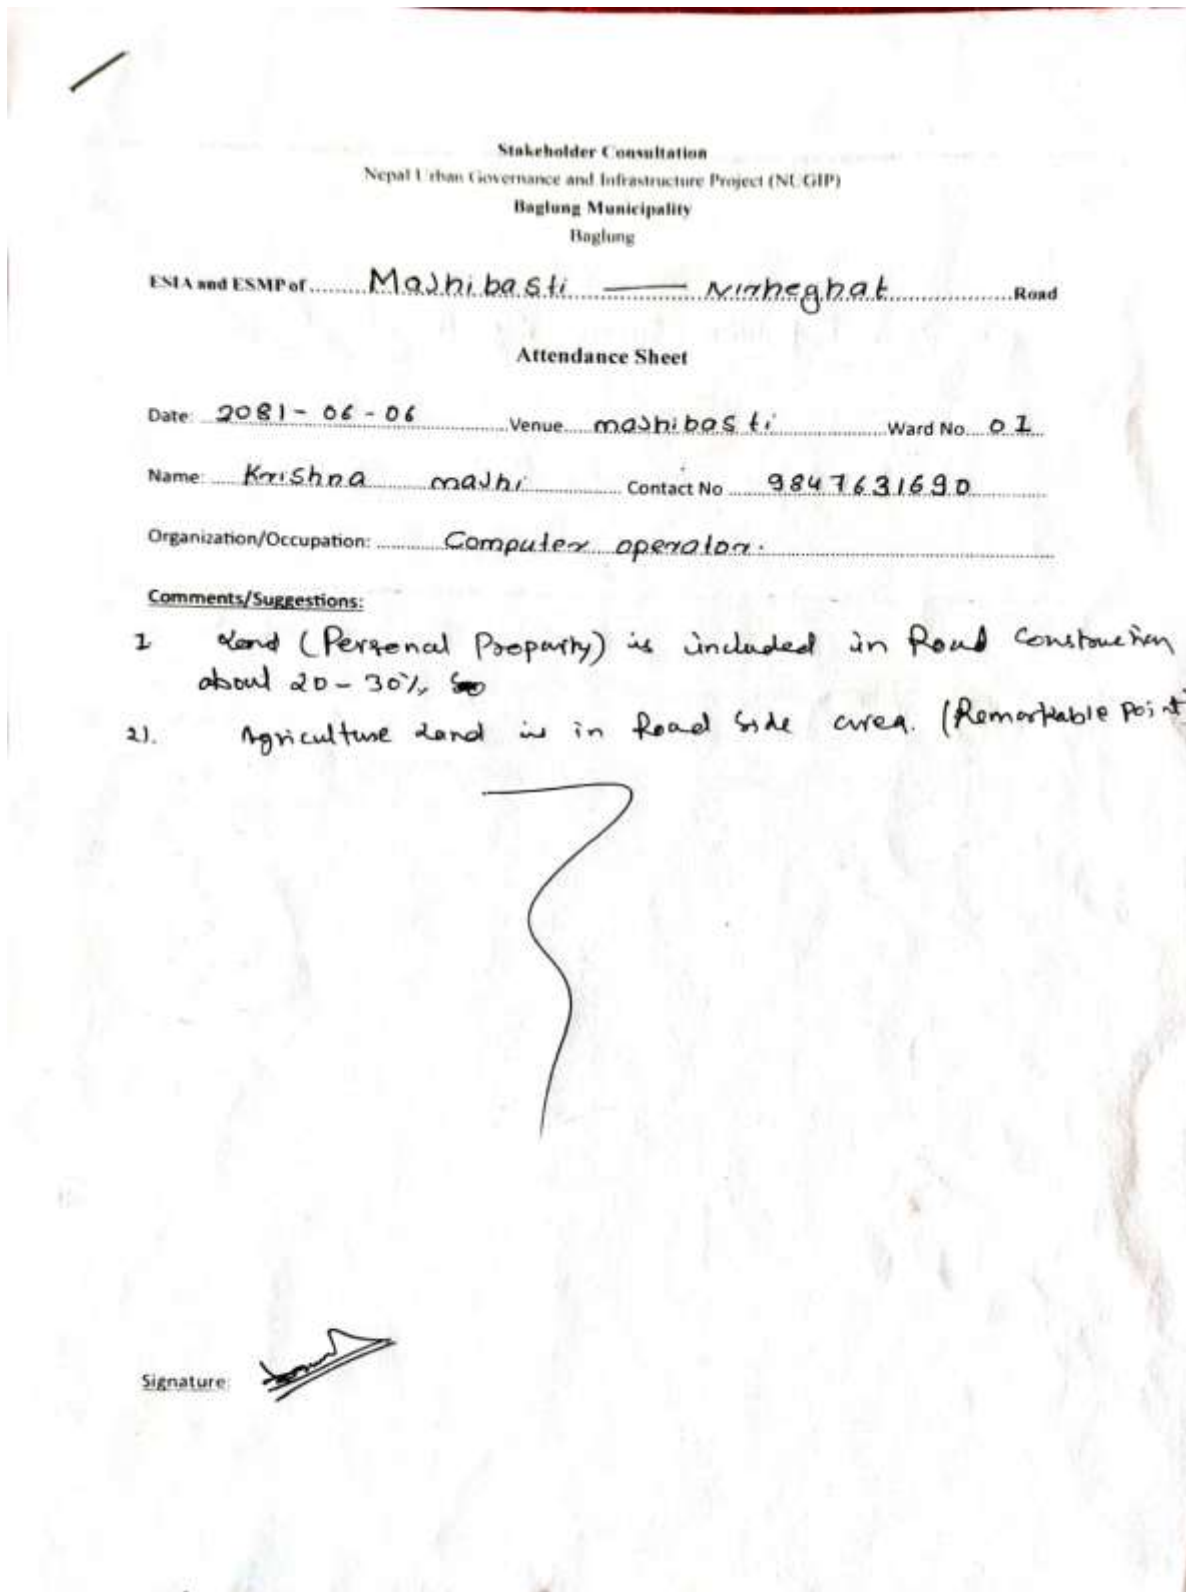 Stakeholder Consultation
Nepal Urban Governance and Infrastructure Project (NUGIP)
Baglung Municipality
Baglung
ESIA and ESMP of ......... Majhibasti —— Nirheghat ................ Road
Attendance Sheet
Date: 2081-06-06 Venue majhibasti Ward No. 01
Name: Krishna majhi Contact No 9847631690
Organization/Occupation: Computer operator.
Comments/Suggestions:
1 Land (Personal Proparty) is included in Road Construction
about 20-30%
2). Agriculture Land is in Road Side area. (Remarkable Point
Signature: